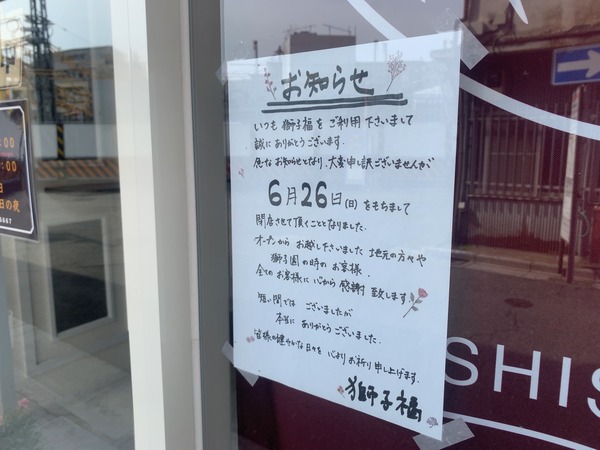 お知らせ
いつも獅子福をご利用下さいまして
誠にありがとうございます.
急なお知らせとなり、大変申し訳ございませんが
6月26日(日)をもちまして
閉店させて頂くこととなりました.
オープンから お越し下さいました 地元の方々や
獅子園の時の お客様.
全ての お客様に 心から 感謝 致します.
短い間では ございましたが
本当に ありがとう ございました.
皆様の健やかな日々を 心より お祈り 申し上げます.
獅子福
SHIS
:00
:00
日
日の夜
6667